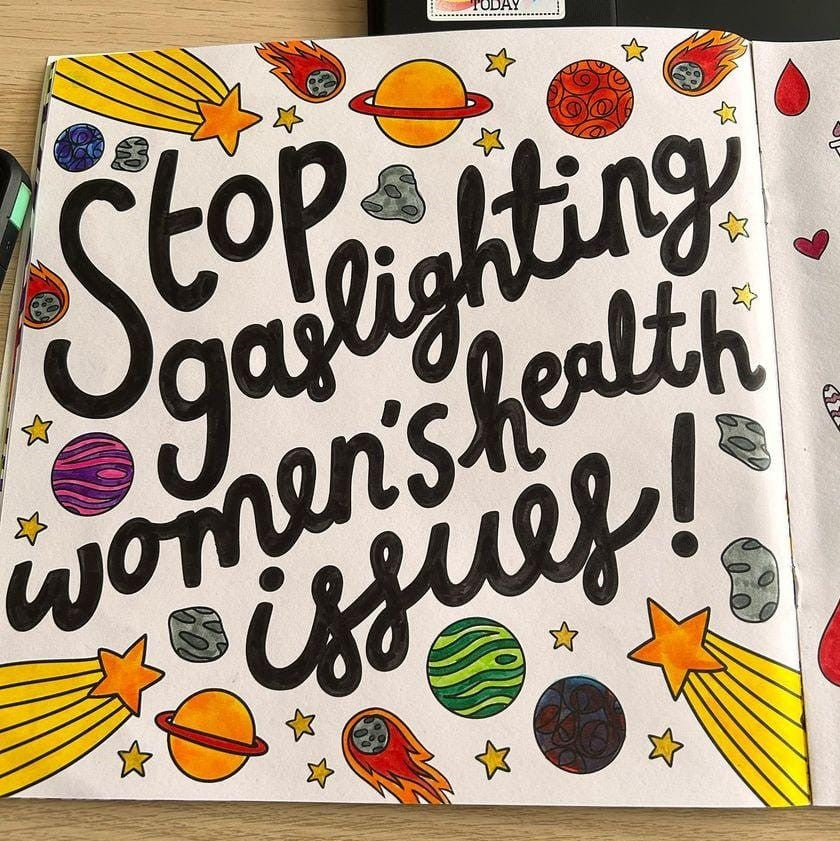 TODAY
Stop
gaslighting
women's health
issues!